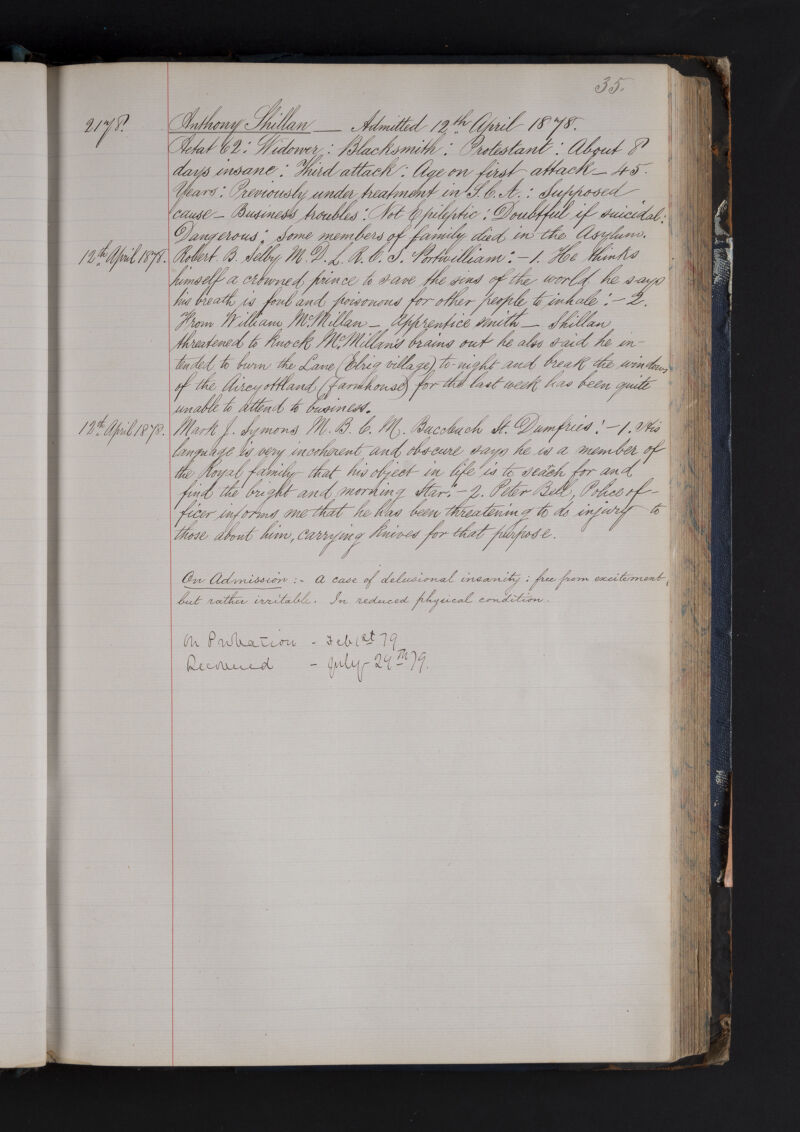 35.
2178. Anthony Shillan — Admitted 12th April 1878.
Aetat 62: Widower: Blacksmith: Protestant: About 8
days insane: Third attack: Age on first attack — 45
Years: Previously under treatment in S.C.A.: Supposed
cause — Business troubles: Not Epileptic: Doubtful if suicidal:
Dangerous: Some members of family died in the Asylum.
12th April 1878. Robert B. Selby M.D. L.R.C.S. Portwilliam: — 1. He thinks
himself a crowned prince to save the sins of the world he says
his breath is foul and poisonous for other people to inhale: — 2.
From William McMillan — Apprentice smith — Shillan
threatened to knock McMillans brains out he also said he in-
tended to burn the Lane (Elrig village) to-night and break the windows
of the (farmhouse) for the last week has been quite
unable to attend to business.
12th April 1878. Mark J. Symons M.B.C.M. Buccleuch St. Dumfries: — 1. His
language is very incoherent and obscure says he is a member of
the Royal family that his object in life is to seach for and
find the bright and morning star: — 2. Peter Bell, Police of-
ficer informs me that he has been threatening to do injury to
those about him, carrying knives for that purpose.
On Admission :- A case of delusional insanity: free from excitement,
but rather irritable. In reduced physical condition.
On Probation - Feb 1st 79
Recovered - July 29th 79.